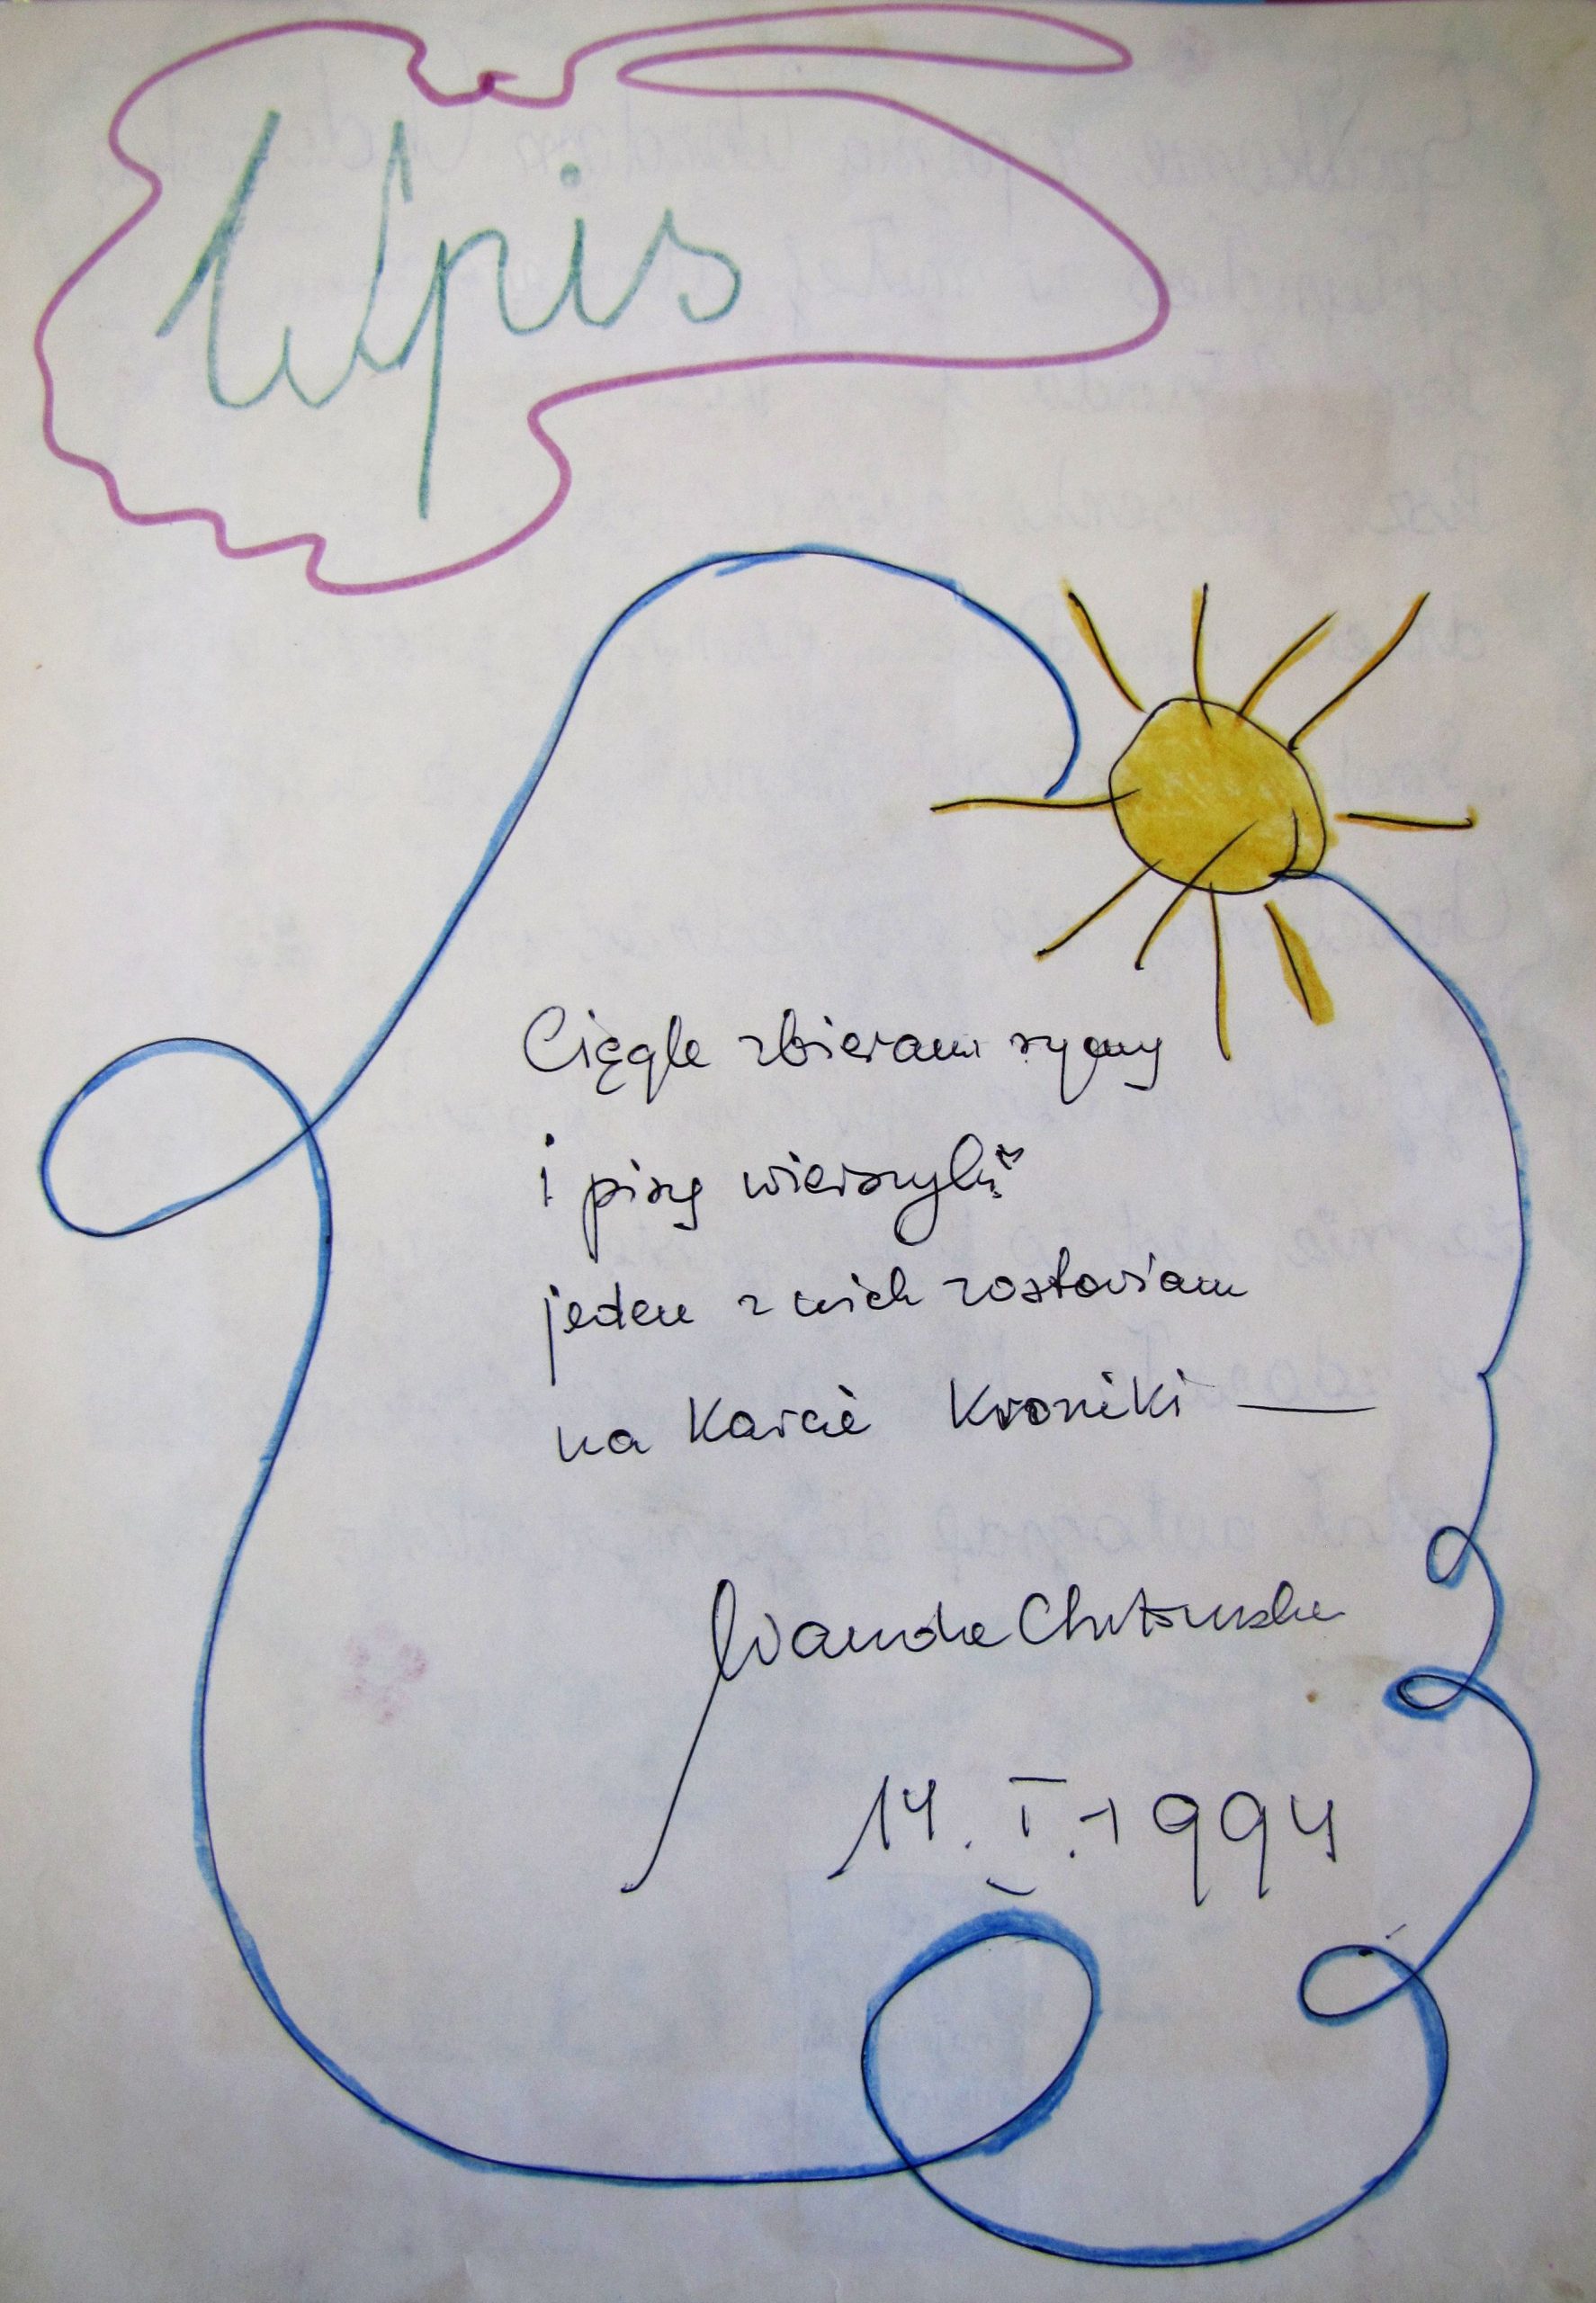 Wpis
Ciągle zbieram rymy
i piszę wierszyki
jeden z nich zostawiam
na Karcie Kroniki —
Wanda Chotomska
14. I. 1994